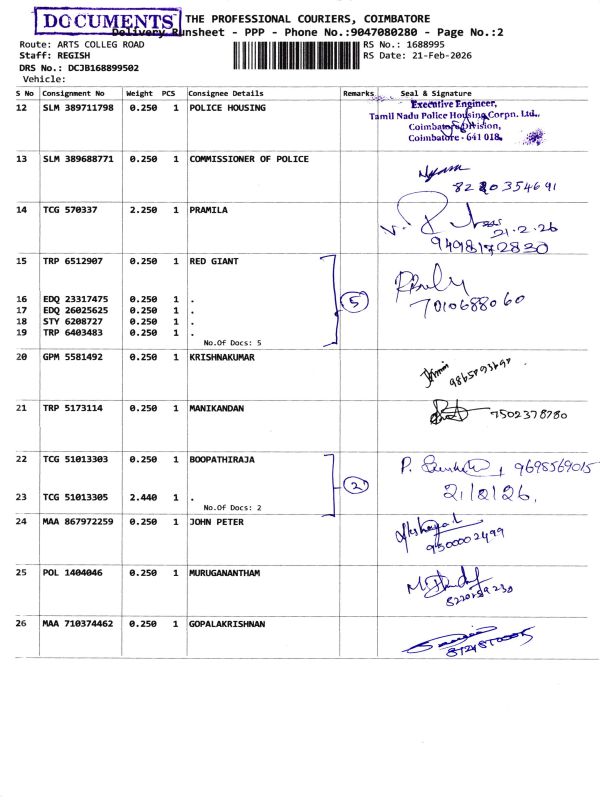 DOCUMENTS
THE PROFESSIONAL COURIERS, COIMBATORE
Delivery Runsheet - PPP - Phone No.:9047080280 - Page No.:2
Route: ARTS COLLEG ROAD
Staff: REGISH
DRS No.: DCJB168899502
Vehicle:
RS No.: 1688995
RS Date: 21-Feb-2026
S No Consignment No Weight PCS Consignee Details Remarks Seal & Signature
12 SLM 389711798 0.250 1 POLICE HOUSING
Executive Engineer,
Tamil Nadu Police Housing Corpn. Ltd.,
Coimbatore Division,
Coimbatore - 641 018.
13 SLM 389688771 0.250 1 COMMISSIONER OF POLICE
14 TCG 570337 2.250 1 PRAMILA
21.2.26
15 TRP 6512907 0.250 1 RED GIANT
16 EDQ 23317475 0.250 1 .
17 EDQ 26025625 0.250 1 .
18 STY 6208727 0.250 1 .
19 TRP 6403483 0.250 1 .
No.Of Docs: 5
5
7010688060
20 GPM 5581492 0.250 1 KRISHNAKUMAR
21 TRP 5173114 0.250 1 MANIKANDAN
7502378780
22 TCG 51013303 0.250 1 BOOPATHIRAJA
9698569015
23 TCG 51013305 2.440 1 .
No.Of Docs: 2
2
21/2/26.
24 MAA 867972259 0.250 1 JOHN PETER
9500002499
25 POL 1404046 0.250 1 MURUGANANTHAM
26 MAA 710374462 0.250 1 GOPALAKRISHNAN